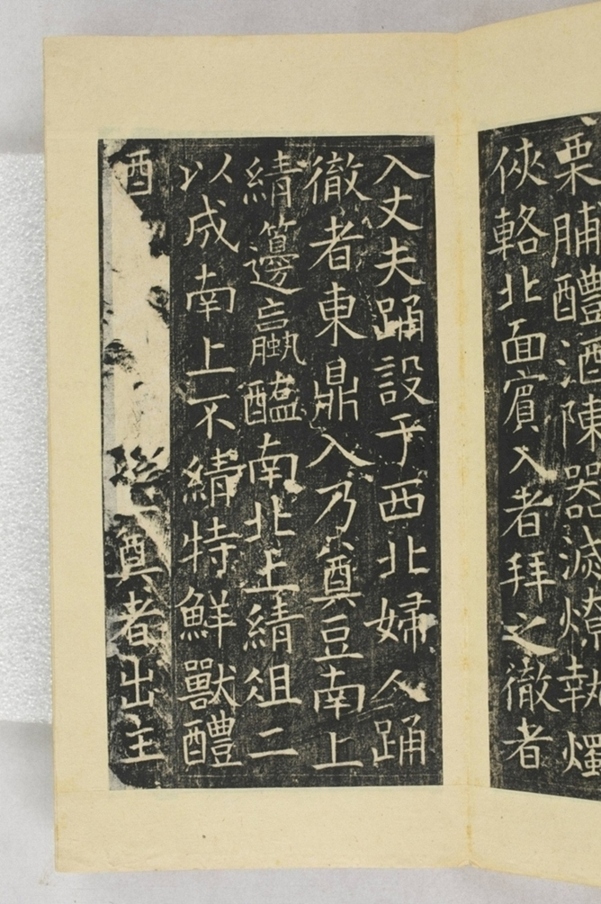 栗脯醴酒陳器滅燎執燭
俠輅北面賓入者拜之徹者
入丈夫踊設于西北婦人踊
徹者東鼎入乃奠豆南上
綪籩蠃醢南北上綪俎二
以成南上不綪特鮮獸醴
酉奠者出主